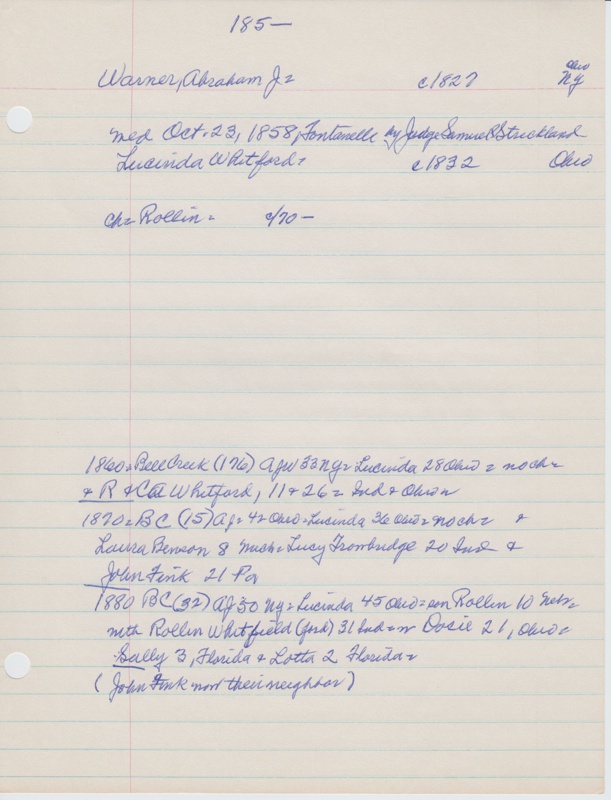 185—
Warner, Abraham J= c1827 Ohio
NY
med Oct. 23, 1858, Fontanelle by Judge Samuel Strickland
Lucinda Whitford= c1832 Ohio
ch= Rollin= c/70—
1860= Bell Creek (176) AJW 33 NY= Lucinda 28 Ohio= no ch=
& R & Whitford, 11 & 26= Ind & Ohio=
1870= BC (15) AJ= 42 Ohio= Lucinda 36 Ohio= no ch= &
Laura Benson 8 Mich= Lucy Trowbridge 20 Ind &
John Fink 21 Pa
1880 BC (32) AJ 50 NY= Lucinda 45 Ohio= son Rollin 10 Neb=
with Rollin Whitfield (ford) 31 Ind= w Dosie 21, Ohio=
Sally 3, Florida & Lotta 2 Florida=
(John Fink now their neighbor)